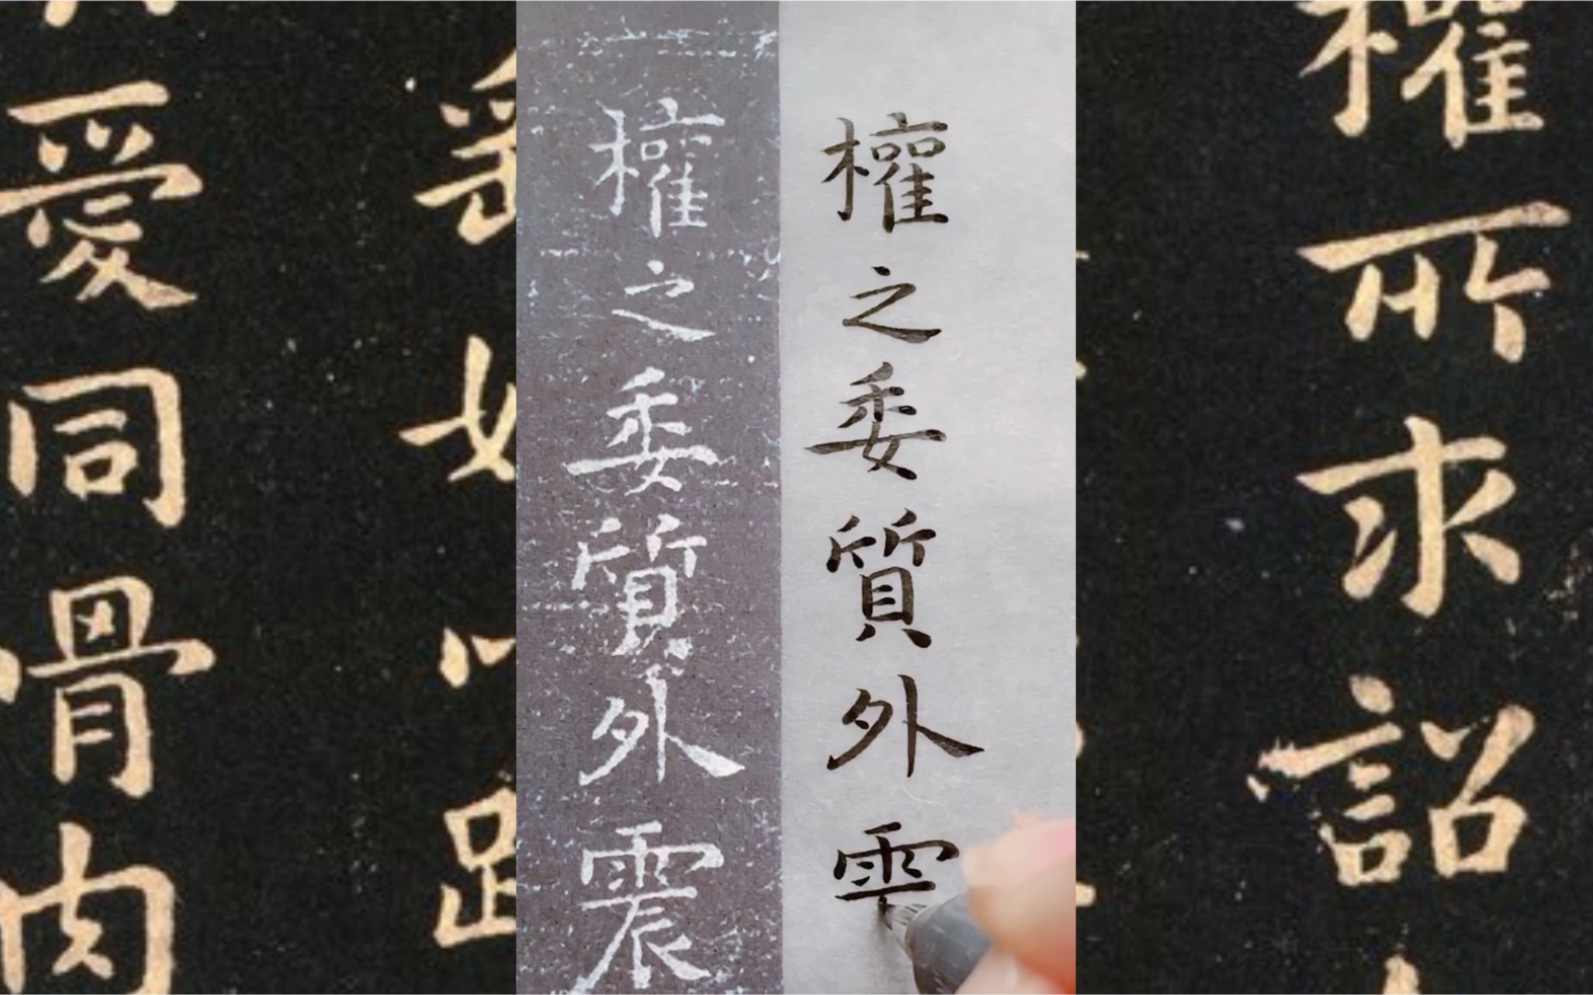 權所求詔
權之委質外
權之委質外震
愛同骨肉